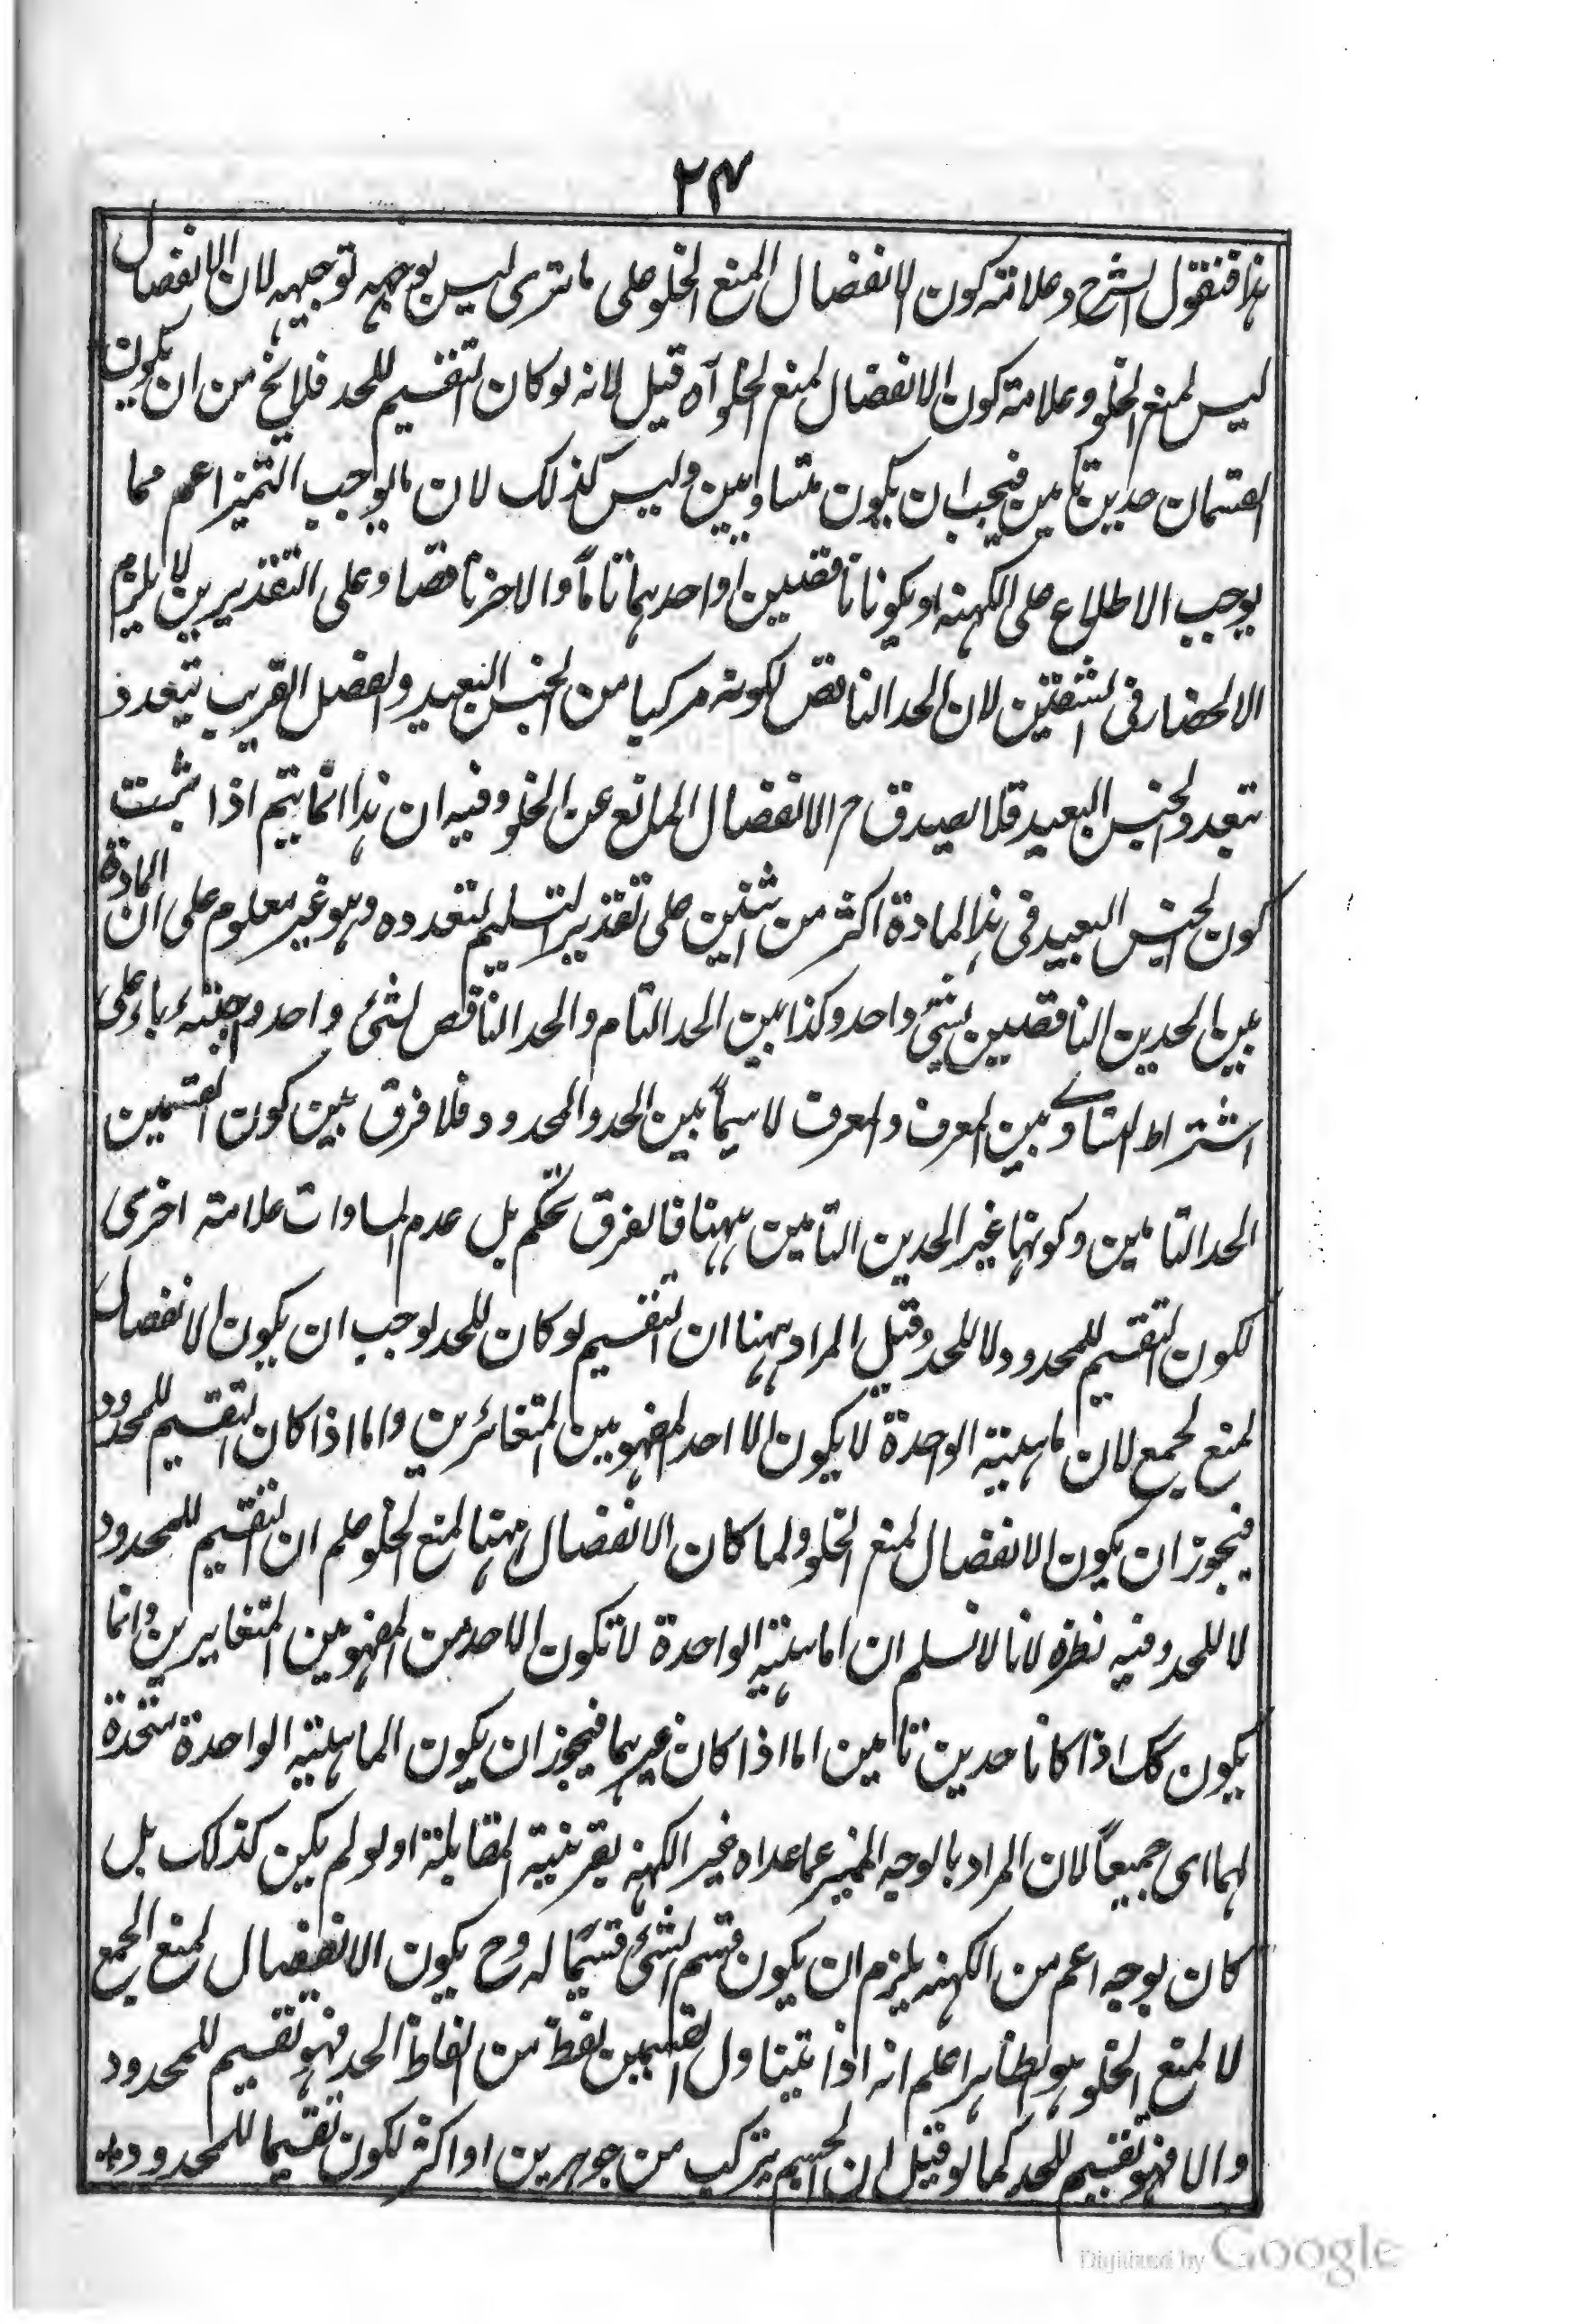 ٢٤
هذا فنقول الشرح وعلامته كون الانفصال المنع الخلو على ما ترى ليس بوجيهه توجيهه لان الانفصال
ليس لمنع الخلو وعلامة كون الانفصال لمنع الخلو آه قيل لانه لو كان التقسيم للحد فلا يخ من ان يكون
القسمان حدين تامين فيجب ان يكون متساويين وليس كذلك لان ما يوجب التميز اعم مما
يوجب الاطلاع على الكنه او يكونا ناقصين او احدهما تاما والاخر ناقصا وعلى التقديرين لا يلزم
الانحصار فى الشقين لان الحد الناقص لكونه مركبا من الجنس البعيد والفصل القريب يتعدد
بتعدد الجنس البعيد فلا يصدق ح الانفصال المانع عن الخلو وفيه ان هذا انما يتم اذا ثبت
كون الجنس البعيد فى هذا المادة اكثر من اثنين على تقدير تسليم تعدده وهو غير معلوم على ان المادة
بين الحدين الناقصين لشئ واحد وكذا بين الحد التام والحد الناقص لشئ واحد وجنسه بناء على
اشتراط التساوے بين المعرف والمعرف لا سيما بين الحد والمحدود فلا فرق بين كون القسمين
الحد التامين وكونهما غير الحدين التامين ههنا فالفرق تحكم بل عدم المساوات علامة اخرى
لكون التقسيم للمحدود لا للحد وقيل المراد ههنا ان التقسيم لو كان للحد لوجب ان يكون الانفصال
لمنع الجمع لان ماهيته الوحدة لا يكون الا احد المفهومين المتغائرين واما اذا كان التقسيم للمحدود
فيجوز ان يكون الانفصال لمنع الخلو ولما كان الانفصال ههنا لمنع الخلو علم ان التقسيم للمحدود
لا للحد وفيه نظر لانا لا نسلم ان اماهيته الواحدة لا تكون الا احد من المفهومين المتغايرين وانما
يكون كك اذا كانا حدين تامين اما اذا كان غيرهما فيجوز ان يكون الماهيته الواحدة متحدة
لهما اى جميعاً لان المراد بالوجه المميز عما عداه غير الكنه بقرينة المقابلة او لو لم يكن كذلك بل
كان بوجه اعم من الكنه يلزم ان يكون قسم الشئ قسيما له وح يكون الانفصال لمنع الجمع
لا لمنع الخلو هو الظاهر اعلم انه اذا يتناول القسمين لفظ من الفاظ الحد فهو تقسيم للمحدود
والا فهو تقسيم للحد كما لو قيل ان الجسم يتركب من جوهرين او اكثر لكون تقسيما للمحدود
Digitized by Google